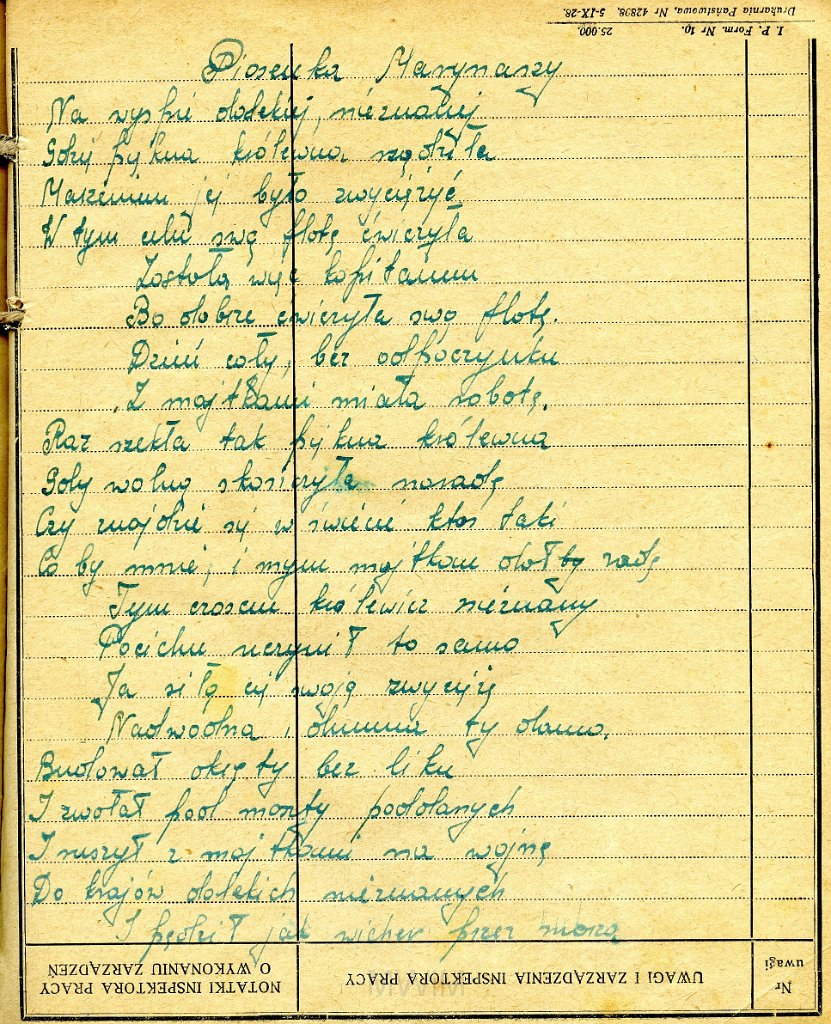 I. P. Form. Nr 10. 25.000.
Drukarnia Państwowa, Nr 42898, 5-IX-28.
Piosenka Marynarzy
Na wyspie dalekiej, nieznanej
Gdzie piękna królewna rządziła
Marzeniem jej było zwyciężyć
W tym celu swą flotę ćwiczyła
Została więc kapitanem
Bo dobrze ćwiczyła swą flotę.
Dzień cały, bez odpoczynku
Z majtkami miała robotę.
Raz rzekła tak piękna królewna
Gdy walną skończyła naradę
Czy znajdzie się w świecie ktoś taki
Co by mnie, i mym majtkom dałby radę
Tym czasem królewicz nieznany
Pocichu uczynił to samo
Ja siłą cię swoją zwyciężę
Nadwodna, dumna ty damo.
Budował okręty bez liku
I zwołał pod maszty poddanych
I ruszył z majtkami na wojnę
Do krajów dalekich nieznanych
I pędził jak wicher przez morza
NOTATKI INSPEKTORA PRACY O WYKONANIU ZARZĄDZEŃ
UWAGI I ZARZĄDZENIA INSPEKTORA PRACY
Nr uwagi